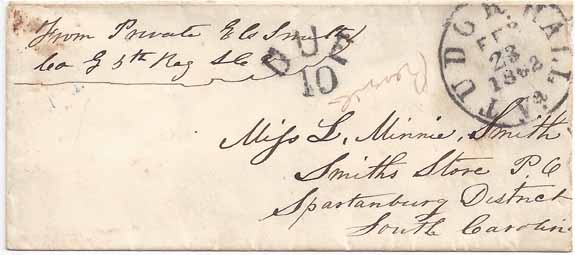 From Private E C Smith
Co G 5th Reg S C
DUE
10
TUDOR HALL Va
FEB
23
1862
Miss L, Minnie, Smith
Smiths Store P. O
Spartanburg District
South Carolin